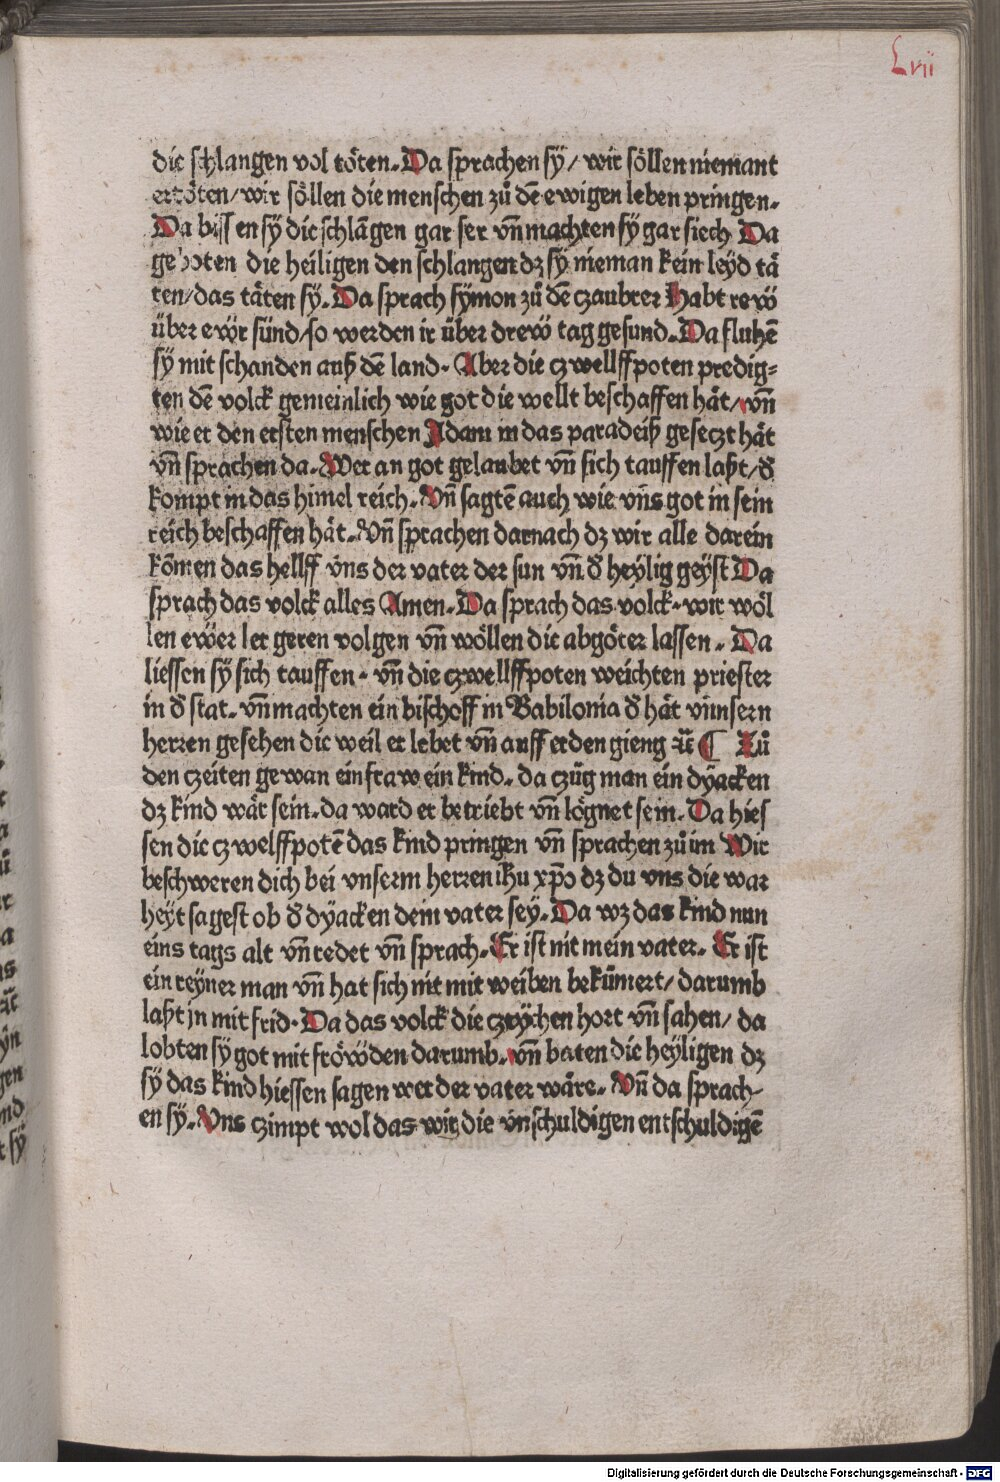 Lvii
die schlangen vol töten. Da sprachen sy/ wir söllen niemant
ertöten/ wir söllen die menschen zů dē ewigen leben pringen.
Da bissen sy die schlāgen gar ser vn̄ machten sy gar siech Da
geboten die heiligen den schlangen dz sy nieman kein leyd tä
ten/ das täten sy. Da sprach symon zů dē czaubrer Habt rew
über ewr sünd/ so werden ir über drew tag gesund. Da fluhē
sy mit schanden auß dē land. Aber die czwellffpoten predig⸗
ten dē volck gemeinlich wie got die wellt beschaffen hät/ vn̄
wie er den ersten menschen Adam in das paradeiß geseczt hät
vn̄ sprachen da. Wer an got gelaubet vn̄ sich tauffen laßt/ đ
kompt in das himel reich. Vn̄ sagtē auch wie vn̄s got in sein
reich beschaffen hät. Vn̄ sprachen darnach dz wir alle darein
kōmen das hellff vns der vater der sun vn̄ đ heylig geyst Da
sprach das volck alles Amen. Da sprach das volck. wir wöl
len ewer ler geren volgen vn̄ wöllen die abgöter lassen. Da
liessen sy sich tauffen. vn̄ die czwellffpoten weichten priester
in đ stat. vn̄ machten ein bischoff in Babilonia đ hät vnnsern
herren gesehen die weil er lebet vn̄ auff erden gieng ꝛc̄ ¶ Zů
den czeiten gewan ein fraw ein kind. da czüg man ein dyacken
dz kind wär sein. da ward er betriebt vn̄ lögnet sein. Da hies
sen die czwelffpotē das kind pringen vn̄ sprachen zů im Wir
beschweren dich bei vnserm herren ihu xp̄o dz du vns die war
heyt sagest ob đ dyacken dein vater sey. Da wz das kind nun
eins tags alt vn̄ redet vn̄ sprach. Er ist nit mein vater. Er ist
ein reyner man vn̄ hat sich nit mit weiben bekūmert/ darumb
laßt jn mit frid. Da das volck die czeychen hort vn̄ sahen/ da
lobten sy got mit fröwden darumb. vn̄ baten die heyligen dz
sy das kind hiessen sagen wer der vater wäre. Vn̄ da sprach-
en sy. Vns czimpt wol das wir die vnschuldigen entschuldigē
Digitalisierung gefördert durch die Deutsche Forschungsgemeinschaft - DFG